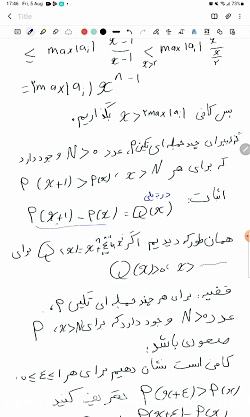 17:46 Fri, 5 Aug 73%
≤ max|a_i| (x^n - 1)/(x - 1) < max|a_i| x^n/(x/2)
x>2
= 2max|a_i| x^(n-1)
پس کافی x > 2max|a_i| بگذاریم.
برای چند جمله ای تکین P، عدد N>0 وجود دارد
که برای هر x>N ، P(x+1) > P(x)
اثبات:
P(x+1) - P(x) = Q(x)
همان طور که دیدیم اگر Q(x)= برای
x> Q(x)>0
قضیه: برای هر چند جمله ای تکین P،
عدد N>0 وجود دارد که برای x>N، P
صعودی باشد.
کافی است نشان دهیم برای هر 1≥ε≥0
P(x+ε) > P(x) کنید
P(x+ε) - P(x)